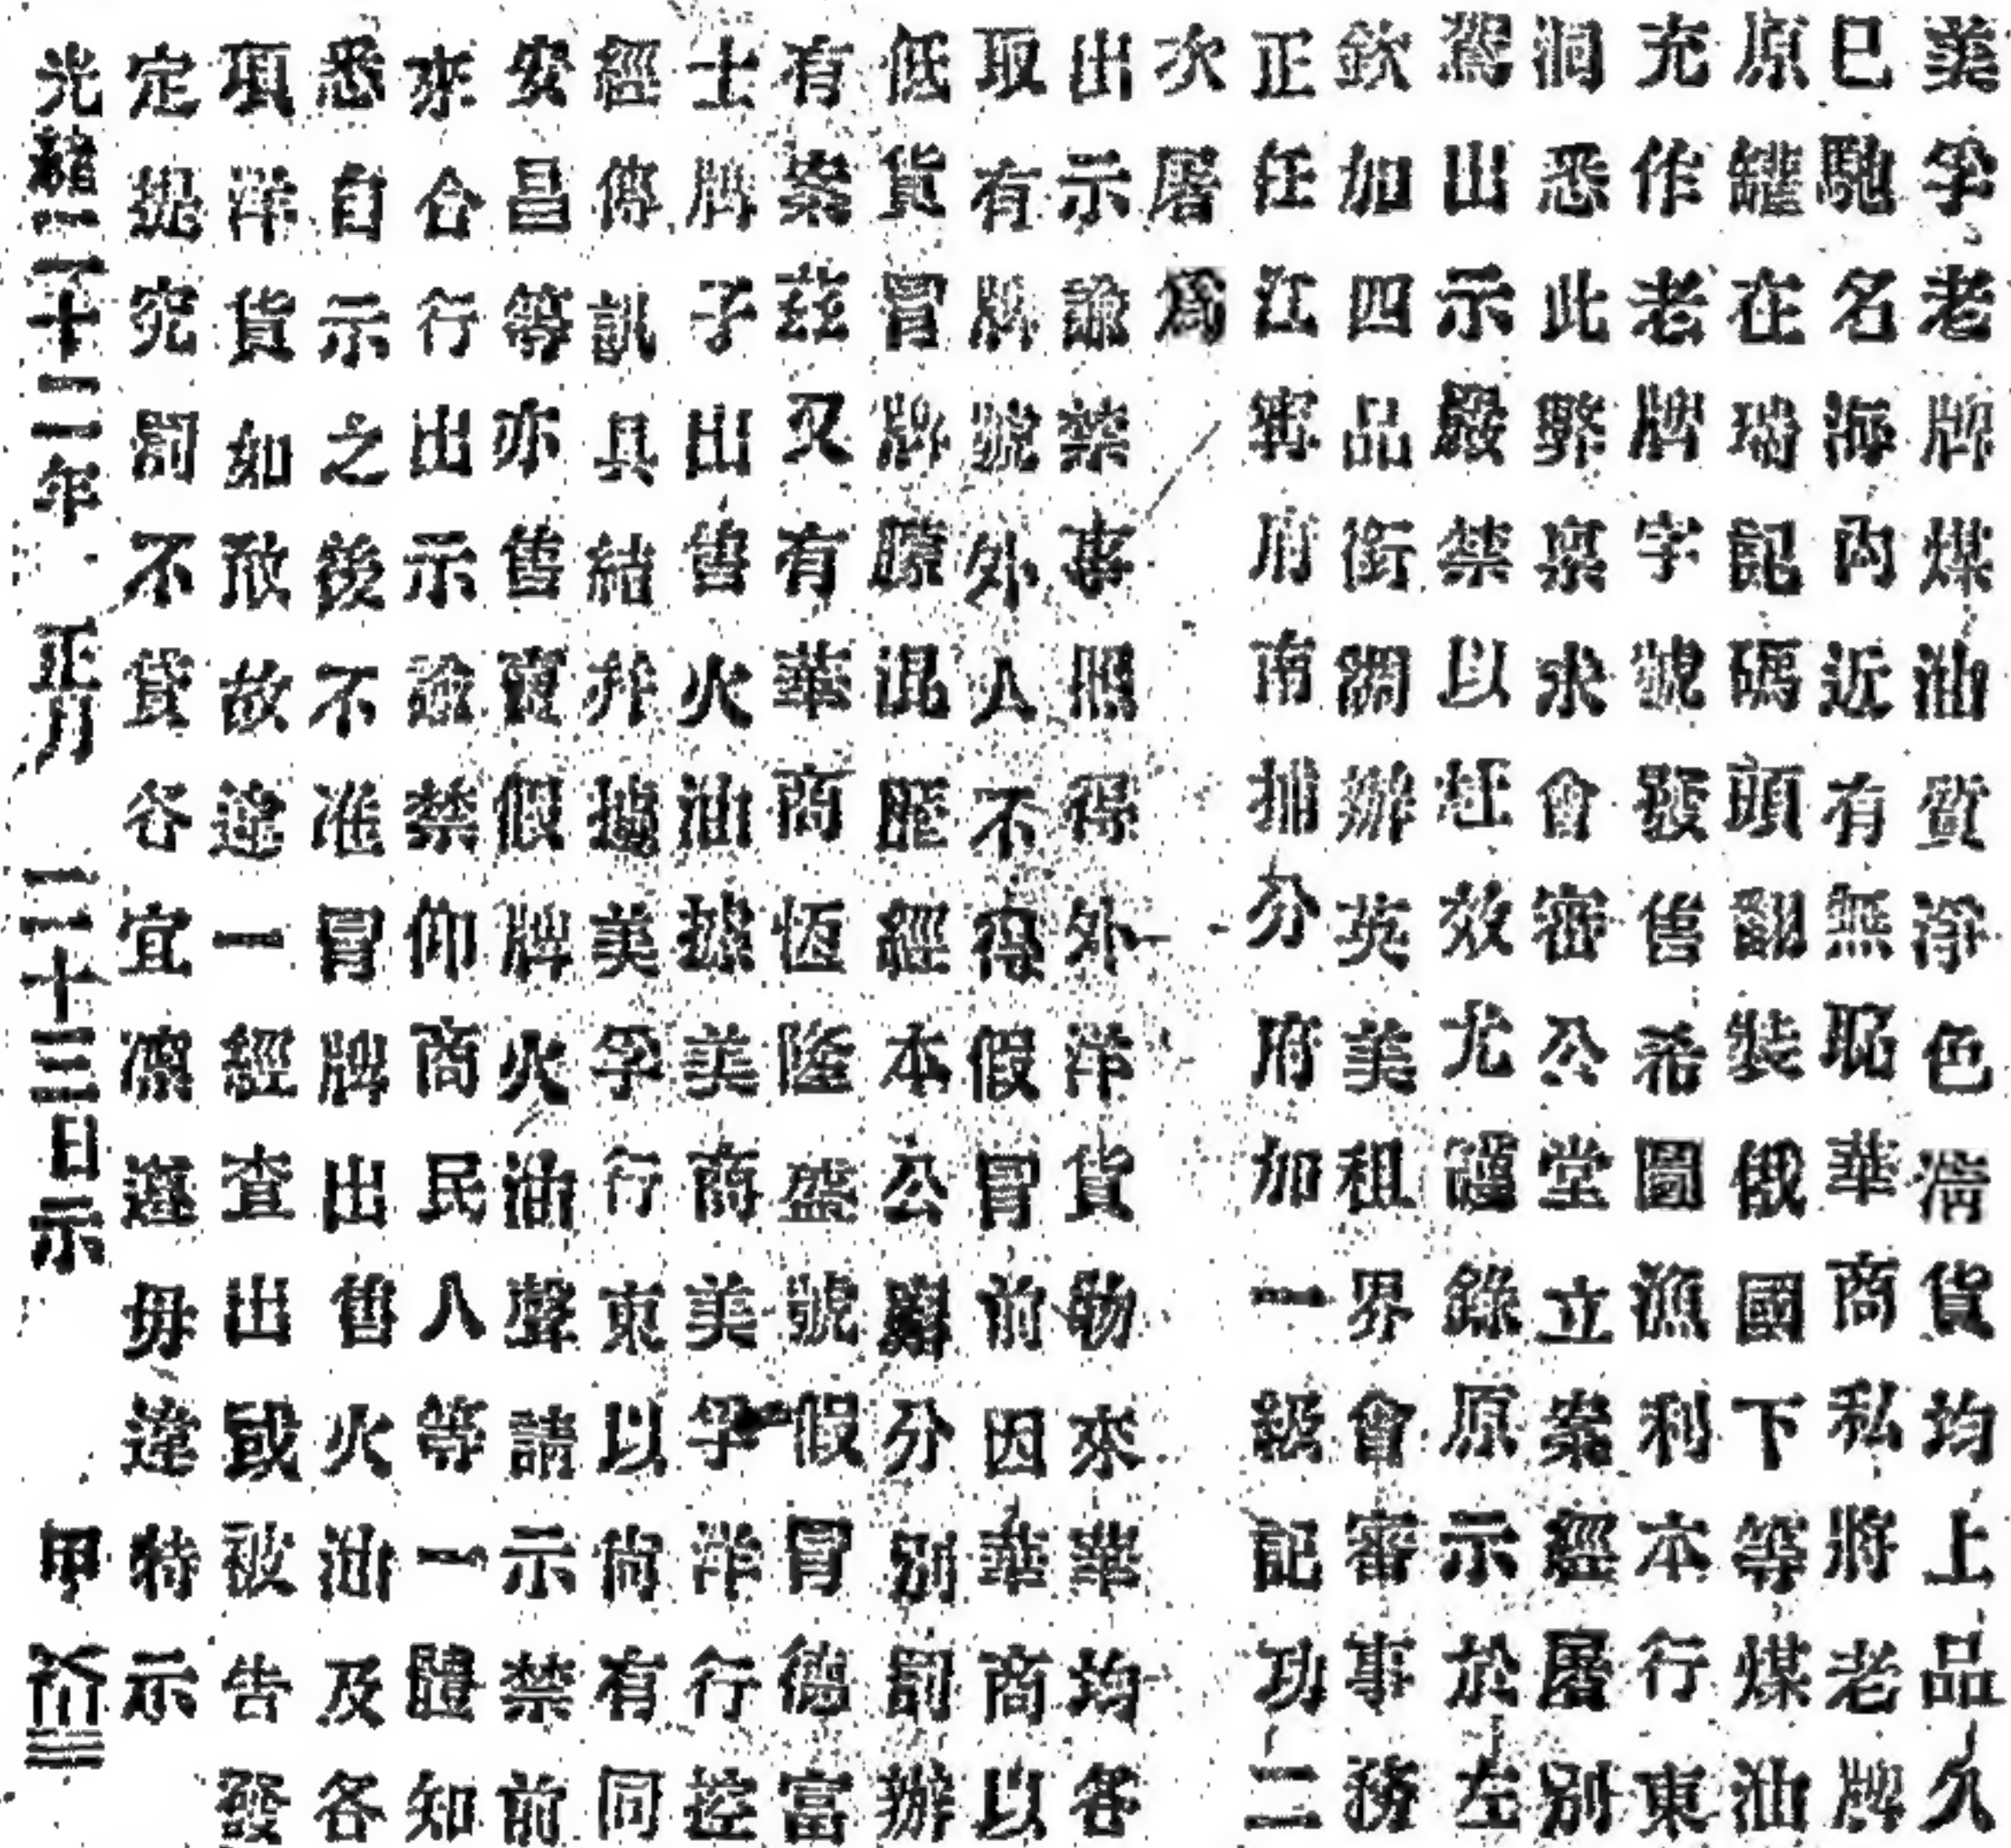 美孚老牌煤油質淨色清貨均上品久
已馳名海內近有無恥華商私將老牌
原罐在瑞記碼頭翻裝俄國下等煤油
充作老牌字號發售希圖漁利本行東
洞悉此弊稟求會審公堂立案經屠別
駕山示嚴禁以枉效尤謹錄原示於左
欽加四品銜調辦英美租界會審事務
正任江寧府南捕分府加一級記功二
次屠為
出示諭禁事照得外洋貨物來華均各
取有牌號外人不得假冒前因華商以
低貨冒牌矇混屢經本公廨分別罰辦
有案茲又有華商恆隆盛號假冒德富
士牌子出售火油據美商美孚洋行控
經傳訊具結幷據美孚行東以尚有同
安昌等亦售賣假牌火油聲請示禁前
來合行出示諭禁仰商民人等一體知
悉自示之後不准冒牌出售火油及各
項洋貨如敢故違一經查出或被告發
定提究罰不貸各宜凜遵毋違特示
光緒二十二年 正月 二十三日示 甲